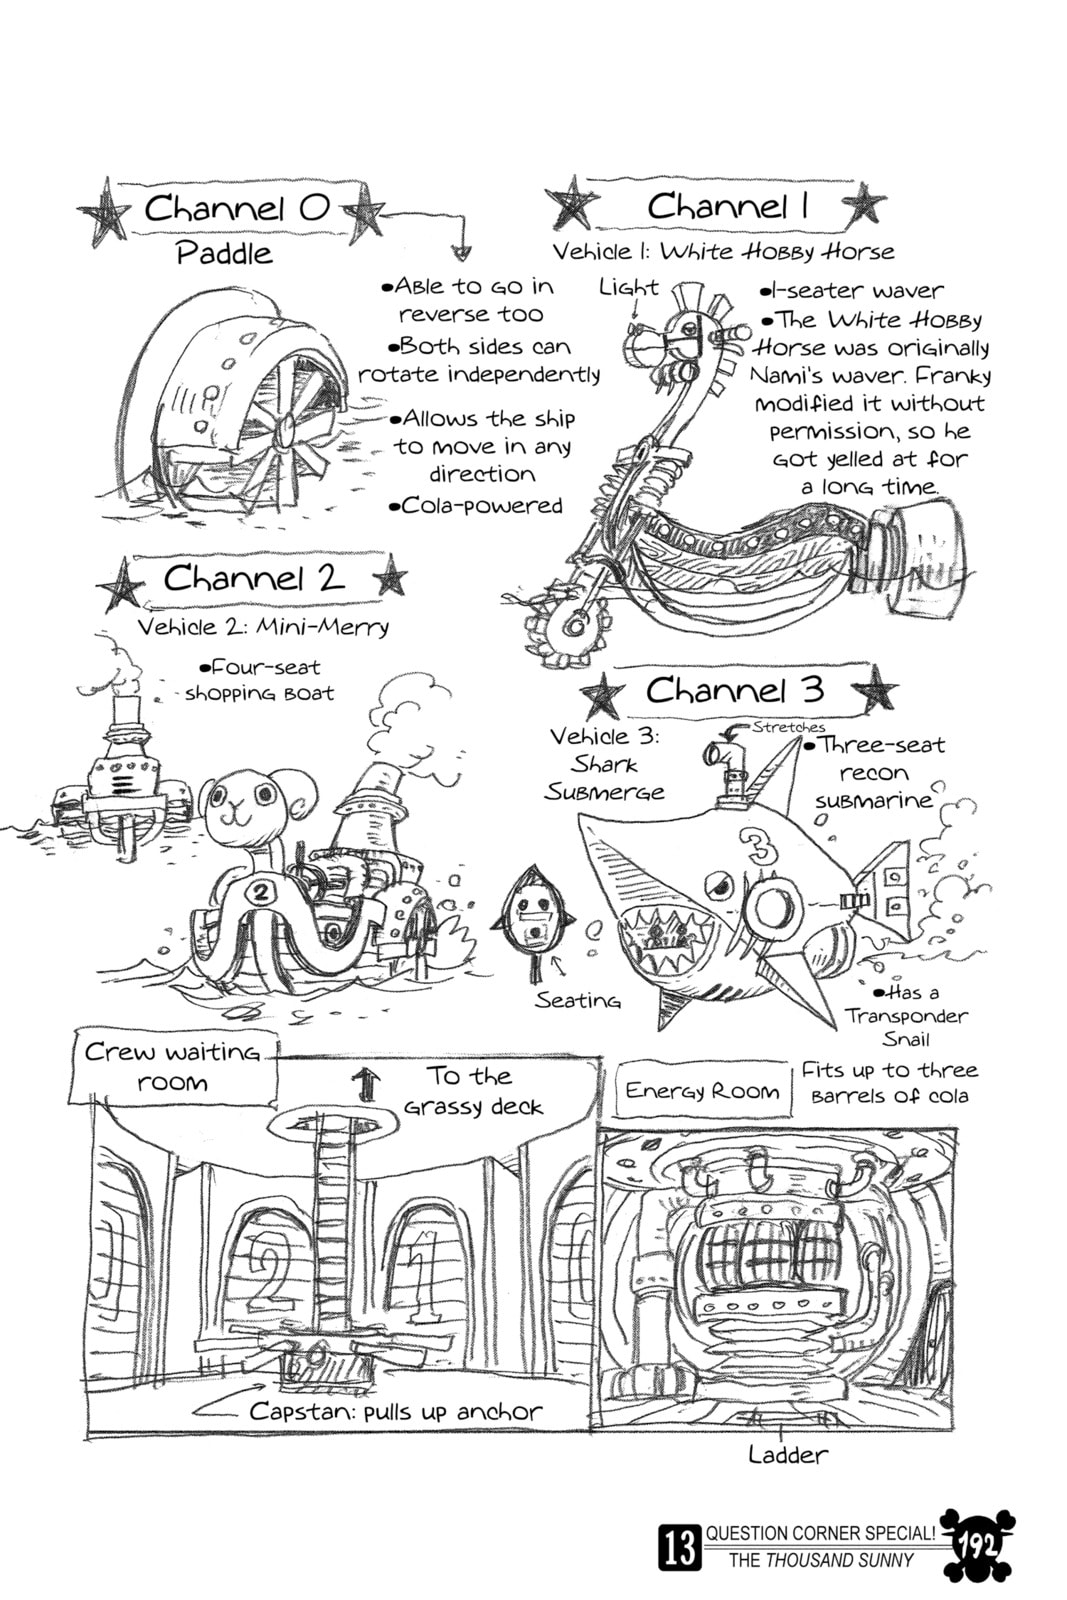 Channel 0
Paddle
•Able to go in
reverse too
•Both sides can
rotate independently
•Allows the ship
to move in any
direction
•Cola-powered
Channel 1
Vehicle 1: White Hobby Horse
Light
•1-seater waver
•The White Hobby
Horse was originally
Nami's waver. Franky
modified it without
permission, so he
got yelled at for
a long time.
Channel 2
Vehicle 2: Mini-Merry
•Four-seat
shopping boat
2
Channel 3
Vehicle 3:
Shark
Submerge
Stretches
•Three-seat
recon
submarine
3
Seating
•Has a
Transponder
Snail
Crew waiting
room
To the
grassy deck
2
1
Capstan: pulls up anchor
Energy Room
Fits up to three
barrels of cola
Ladder
13
QUESTION CORNER SPECIAL!
THE THOUSAND SUNNY
192